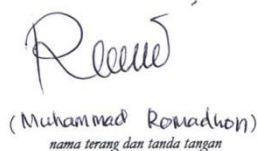 (Muhammad Romadhon)
nama terang dan tanda tangan